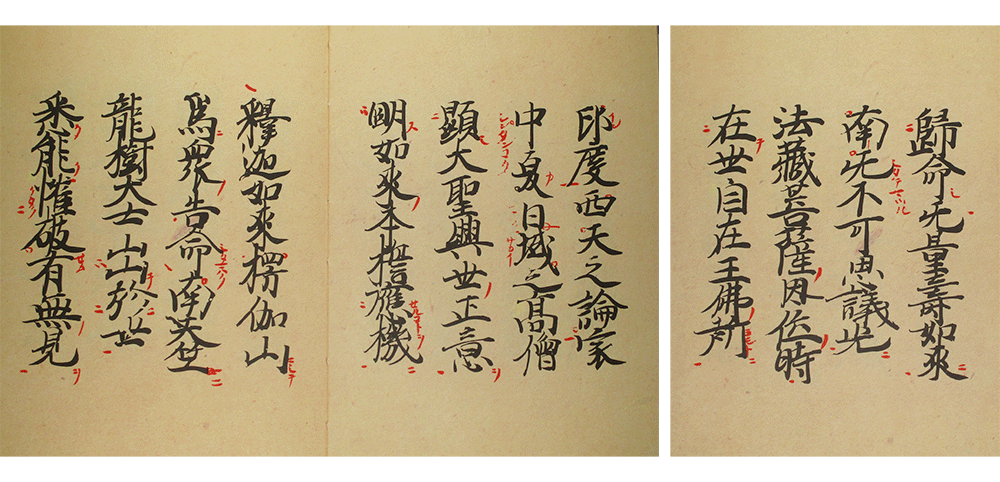 歸命无量壽如來
南无不可思議光
法藏菩薩因位時
在世自在王佛所
印度西天之論家
中夏日域之高僧
顯大聖興世正意
明如來本誓應機
釋迦如來楞伽山
爲衆告命南天竺
龍樹大士出於世
悉能摧破有無見